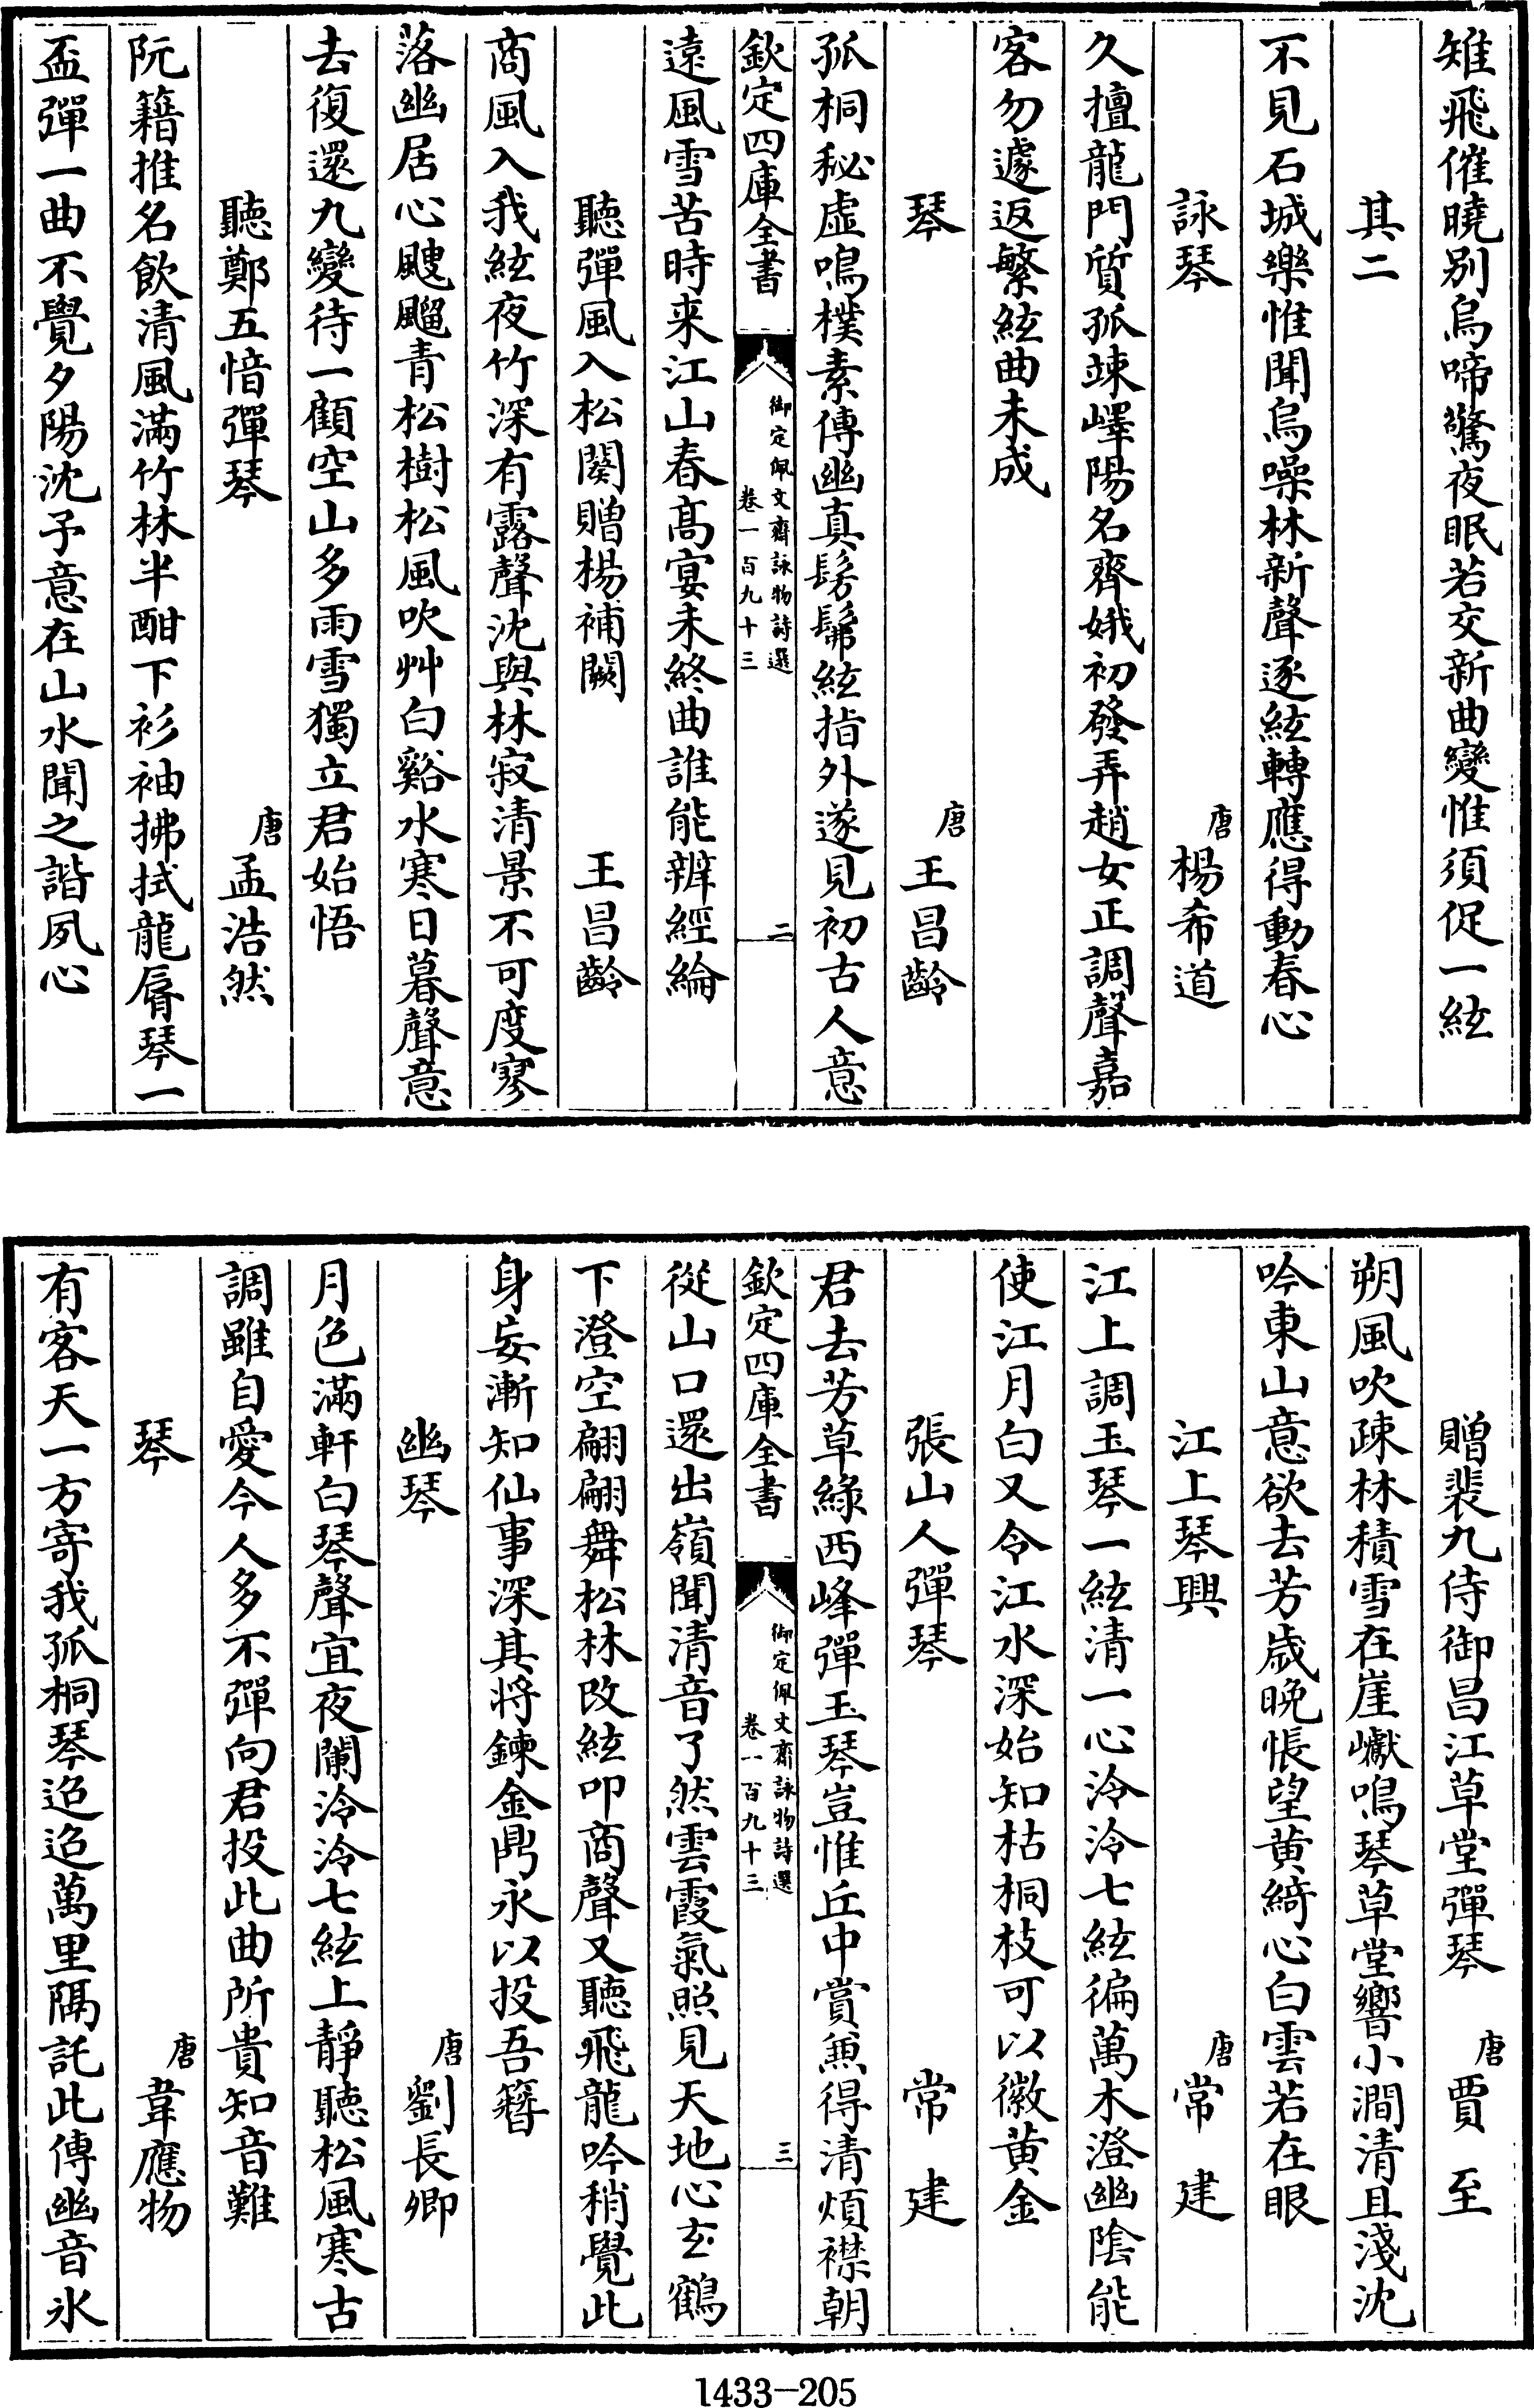 雉飛催曉別烏啼驚夜眠若交新曲變惟須促一絃
其二
不見石城樂惟聞烏噪林新聲逐絃轉應得動春心
詠琴 唐楊希道
久擅龍門質孤竦嶧陽名齊娥初發弄趙女正調聲嘉
客勿遽返繁絃曲未成
琴 唐王昌齡
孤桐秘虛鳴樸素傳幽真髣髴絃指外遂見初古人意
欽定四庫全書 御定佩文齋詠物詩選 卷一百九十三 二
遠風雪苦時来江山春高宴未終曲誰能辨經綸
聽彈風入松闋贈楊補闕 王昌齡
商風入我絃夜竹深有露聲沈與林寂清景不可度寥
落幽居心颼飀青松樹松風吹艸白谿水寒日暮聲意
去復還九變待一顧空山多雨雪獨立君始悟
聽鄭五愔彈琴 唐孟浩然
阮籍推名飲清風滿竹林半酣下衫袖拂拭龍脣琴一
盃彈一曲不覺夕陽沈予意在山水聞之諧夙心
贈裴九侍御昌江草堂彈琴 唐賈至
朔風吹疎林積雪在崖巘鳴琴草堂響小澗清且淺沈
吟東山意欲去芳歲晚悵望黃綺心白雲若在眼
江上琴興 唐常建
江上調玉琴一絃清一心泠泠七絃徧萬木澄幽陰能
使江月白又令江水深始知枯桐枝可以徽黃金
張山人彈琴 常建
君去芳草綠西峰彈玉琴豈惟丘中賞兼得清煩襟朝
欽定四庫全書 御定佩文齋詠物詩選 卷一百九十三 三
從山口還出嶺聞清音了然雲霞氣照見天地心玄鶴
下澄空翩翩舞松林改絃叩商聲又聽飛龍吟稍覺此
身妄漸知仙事深其將鍊金鼎永以投吾簪
幽琴 唐劉長卿
月色滿軒白琴聲宜夜闌泠泠七絃上靜聽松風寒古
調雖自愛今人多不彈向君投此曲所貴知音難
琴 唐韋應物
有客天一方寄我孤桐琴迢迢萬里隔託此傳幽音氷
1433-205